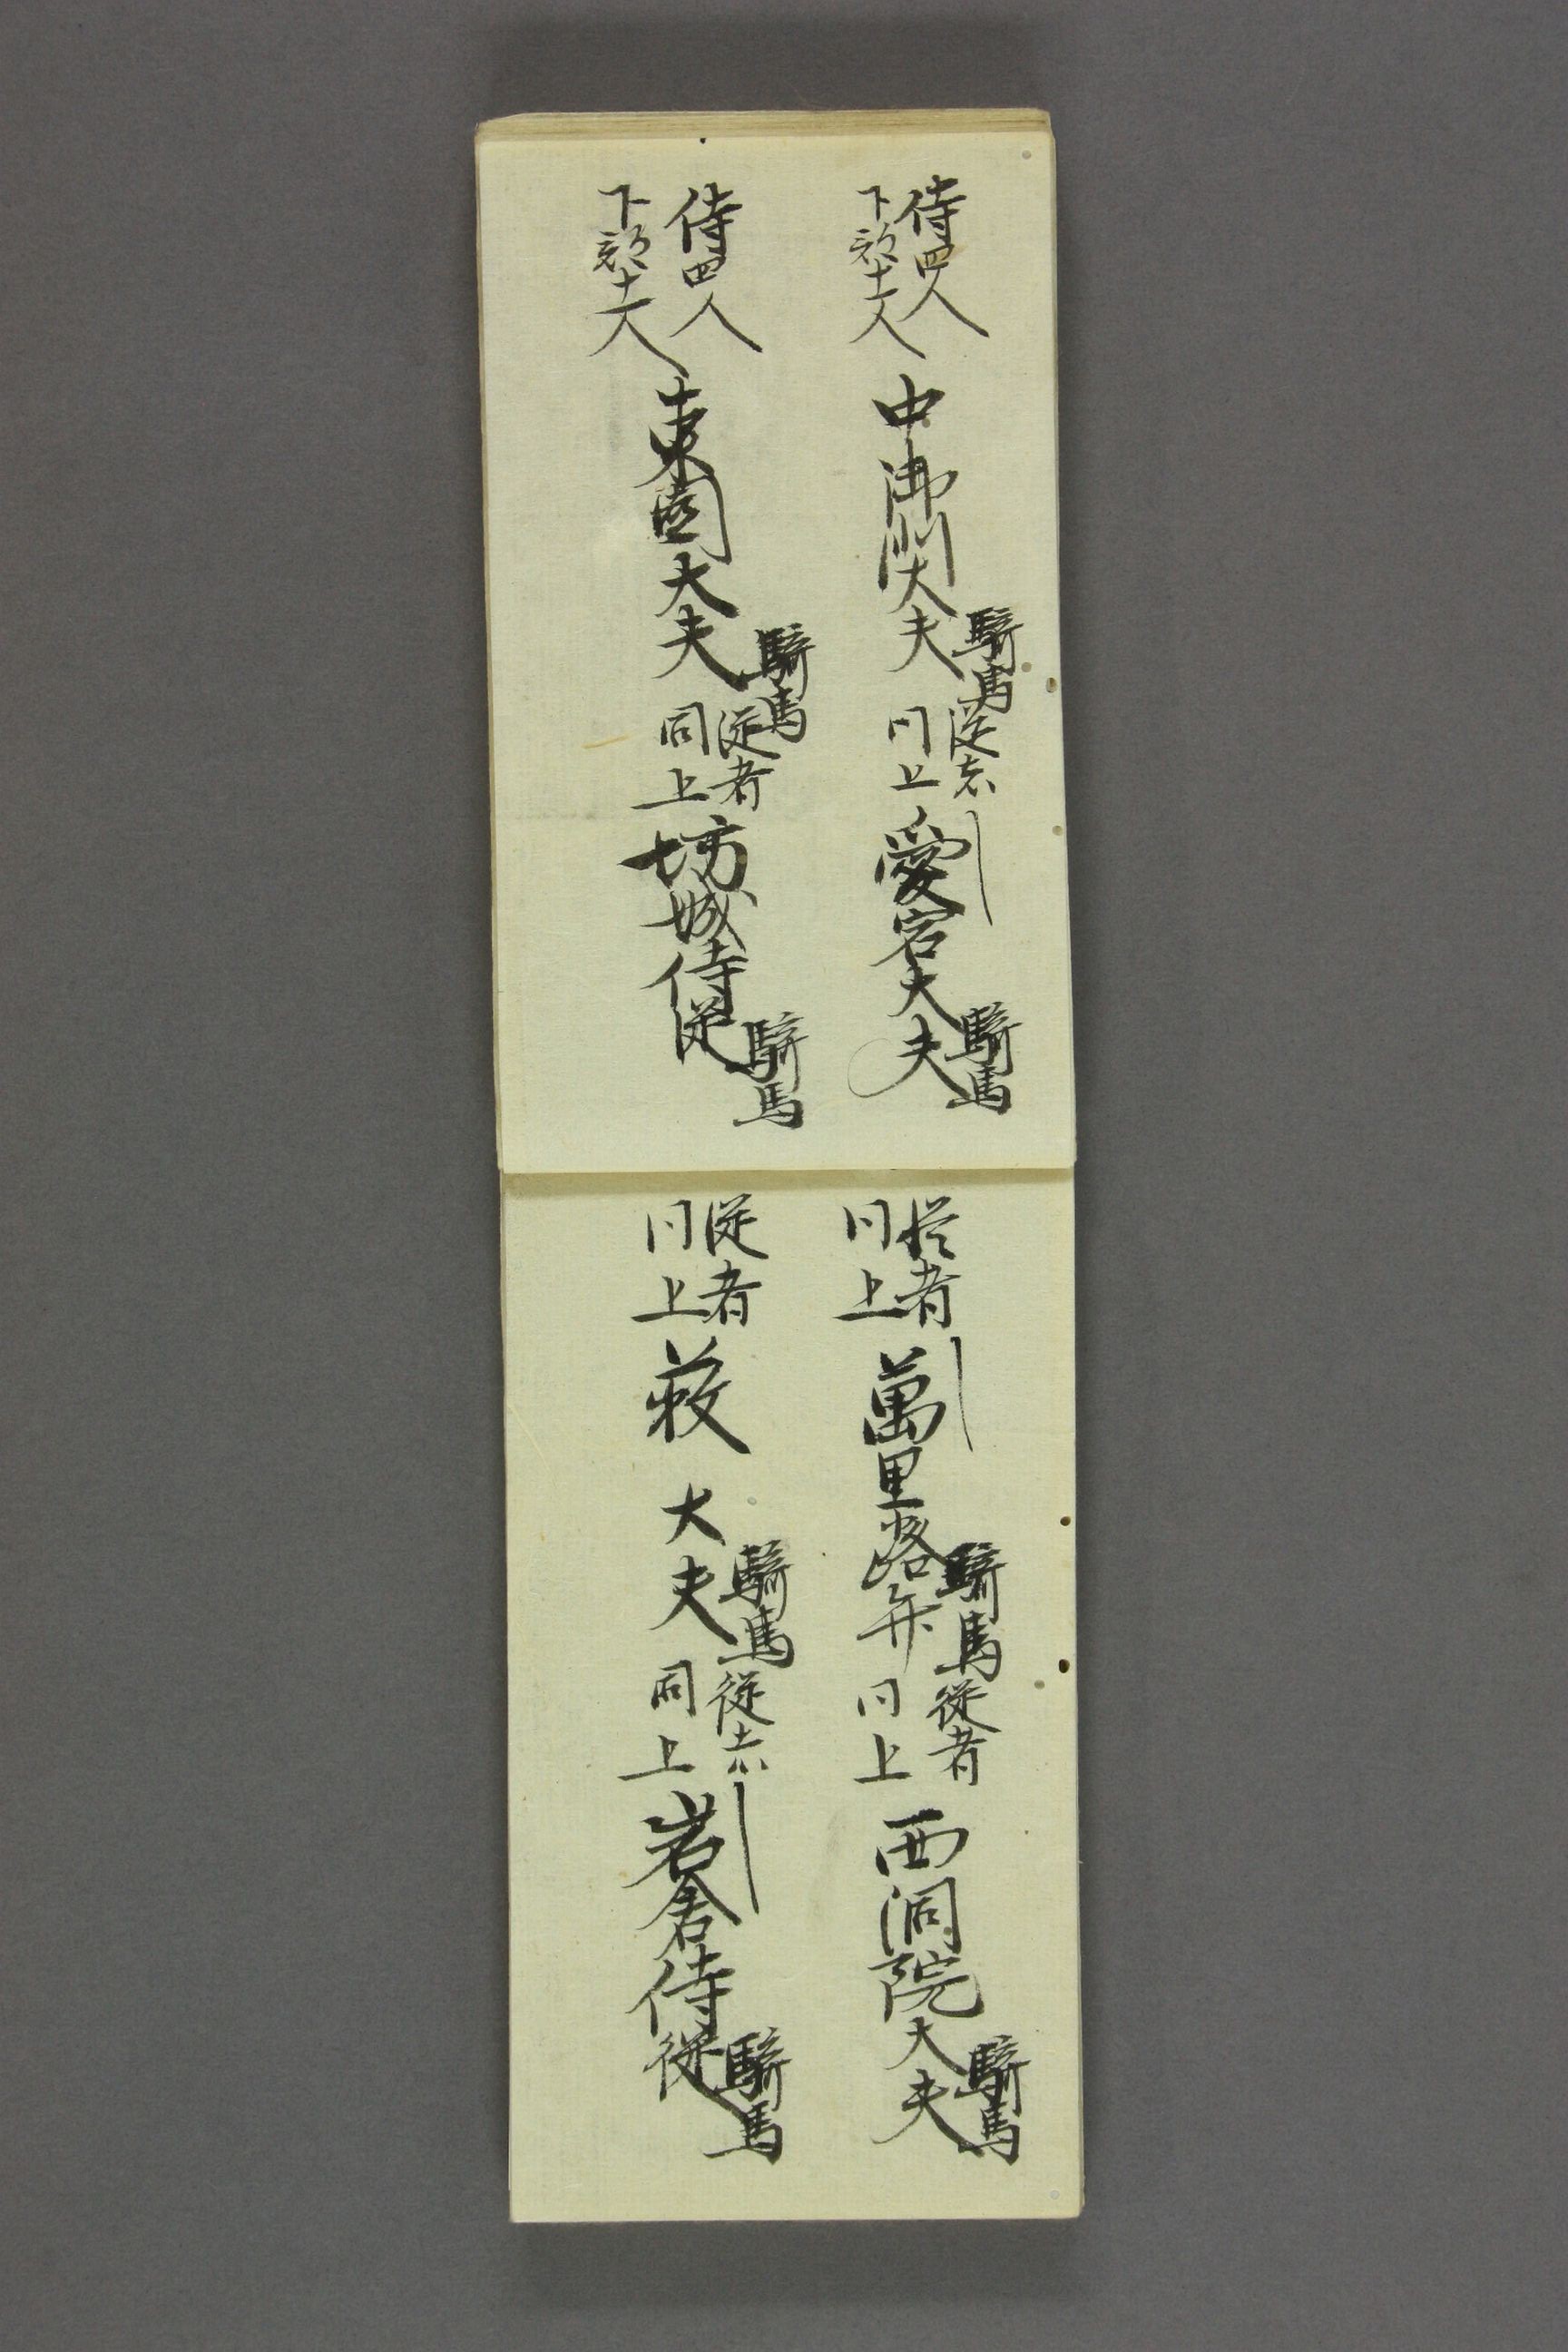 侍四人
下部十二人
中御門大夫
騎馬
従者
同上
愛宕大夫
騎馬
侍四人
下部十二人
東園大夫
騎馬
従者
同上
坊城侍従
騎馬
従者
同上
萬里路弁
騎馬
従者
同上
西洞院大夫
騎馬
従者
同上
萩大夫
騎馬
従者
同上
岩倉侍従
騎馬